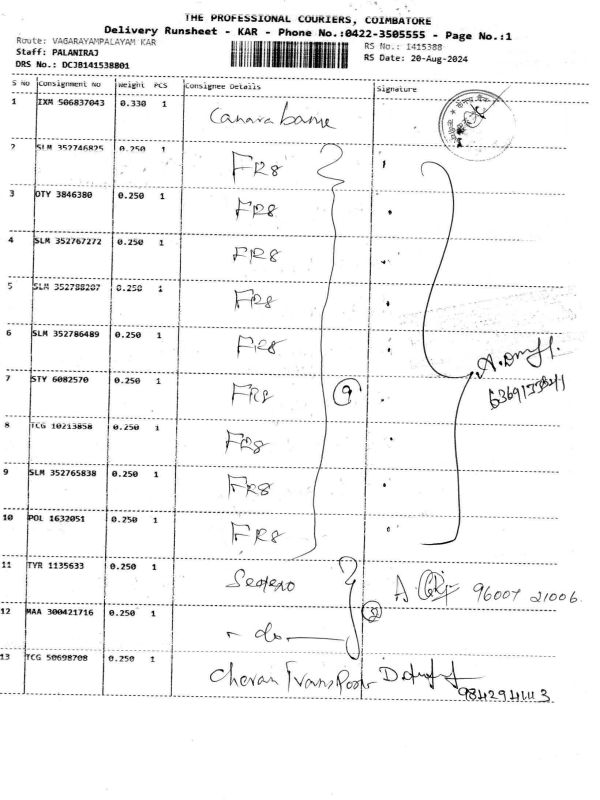 THE PROFESSIONAL COURIERS, COIMBATORE
Delivery Runsheet - KAR - Phone No.:0422-3505555 - Page No.:1
Route: VAGARAYAMPALAYAM KAR
RS No.: 1415388
Staff: PALANIRAJ
RS Date: 20-Aug-2024
DRS No.: DCJB141538801
S No Consignment No Weight PCS Consignee Details Signature
1 IXM 506837043 0.330 1 Canara bank
2 SLM 352746825 0.250 1 FR8
3 OTY 3846380 0.250 1 FR8
4 SLM 352767272 0.250 1 FR8
5 SLM 352788207 0.250 1 FR8
6 SLM 352786489 0.250 1 FR8
7 STY 6082570 0.250 1 FR8 9
8 TCG 10213858 0.250 1 FR8
9 SLM 352765838 0.250 1 FR8
10 POL 1632051 0.250 1 FR8
11 TYR 1135633 0.250 1 96007 21006
12 MAA 300421716 0.250 1 - do -
13 TCG 50698708 0.250 1 Cheran Transport